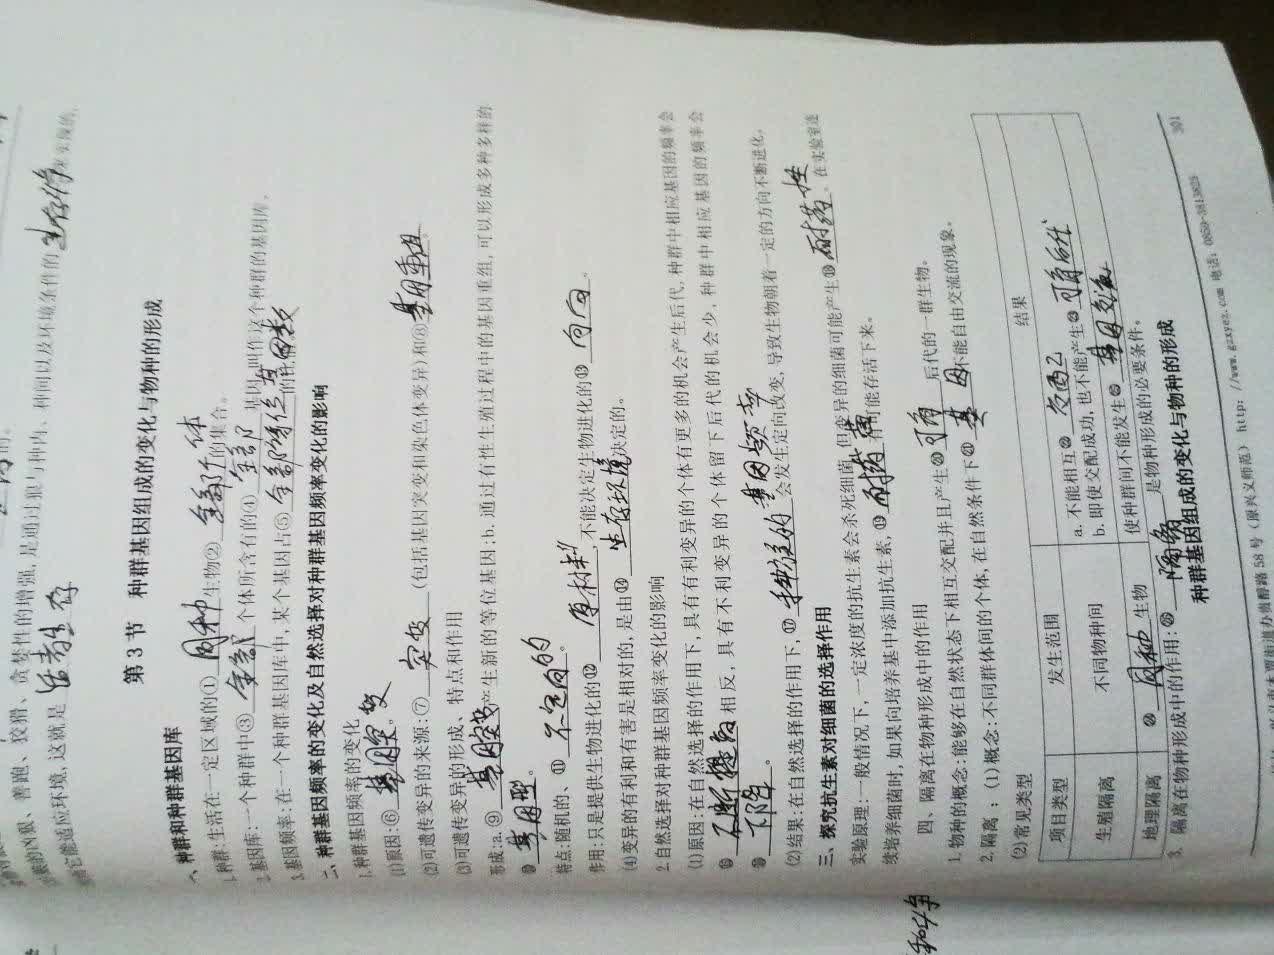 狠的凶狠、善跑、狡猾、贪婪性的增强,是通过狼与种内、种间以及环境条件的生存斗争来实现的,
它能适应环境,这就是适者生存
第3节 种群基因组成的变化与物种的形成
一、种群和种群基因库
1.种群:生活在一定区域的①同种生物②全部个体的集合。
2.基因库:一个种群中③全部个体所含有的④全部基因,叫作这个种群的基因库。
3.基因频率:在一个种群基因库中,某个基因占⑤全部等位基因数的比值。
二、种群基因频率的变化及自然选择对种群基因频率变化的影响
1.种群基因频率的变化
(1)原因:⑥基因突变。
(2)可遗传变异的来源:⑦突变(包括基因突变和染色体变异)和⑧基因重组。
(3)可遗传变异的形成、特点和作用
形成:a.⑨基因突变产生新的等位基因;b.通过有性生殖过程中的基因重组,可以形成多种多样的
⑩基因型。
特点:随机的、⑪不定向的。
作用:只是提供生物进化的⑫原材料,不能决定生物进化的⑬方向。
(4)变异的有利和有害是相对的,是由⑭生存环境决定的。
2.自然选择对种群基因频率变化的影响
(1)原因:在自然选择的作用下,具有有利变异的个体有更多的机会产生后代,种群中相应基因的频率会
⑮不断提高;相反,具有不利变异的个体留下后代的机会少,种群中相应基因的频率会
⑯下降。
(2)结果:在自然选择的作用下,⑰种群的基因频率会发生定向改变,导致生物朝着一定的方向不断进化。
三、探究抗生素对细菌的选择作用
实验原理:一般情况下,一定浓度的抗生素会杀死细菌,但变异的细菌可能产生⑱耐药性。在实验室连
续培养细菌时,如果向培养基中添加抗生素,⑲耐药菌有可能存活下来。
四、隔离在物种形成中的作用
1.物种的概念:能够在自然状态下相互交配并且产生⑳可育后代的一群生物。
2.隔离:(1)概念:不同群体间的个体,在自然条件下㉑基因不能自由交流的现象。
(2)常见类型
项目类型 发生范围 结果
生殖隔离 不同物种间 a.不能相互㉒交配
b.即使交配成功,也不能产生㉓可育后代
地理隔离 ㉔同种生物 使种群间不能发生㉕基因交流
3.隔离在物种形成中的作用:㉖隔离是物种形成的必要条件。
种群基因组成的变化与物种的形成
58号(原兴义师范) http://www.gzxyez.com 电话:0859-
301